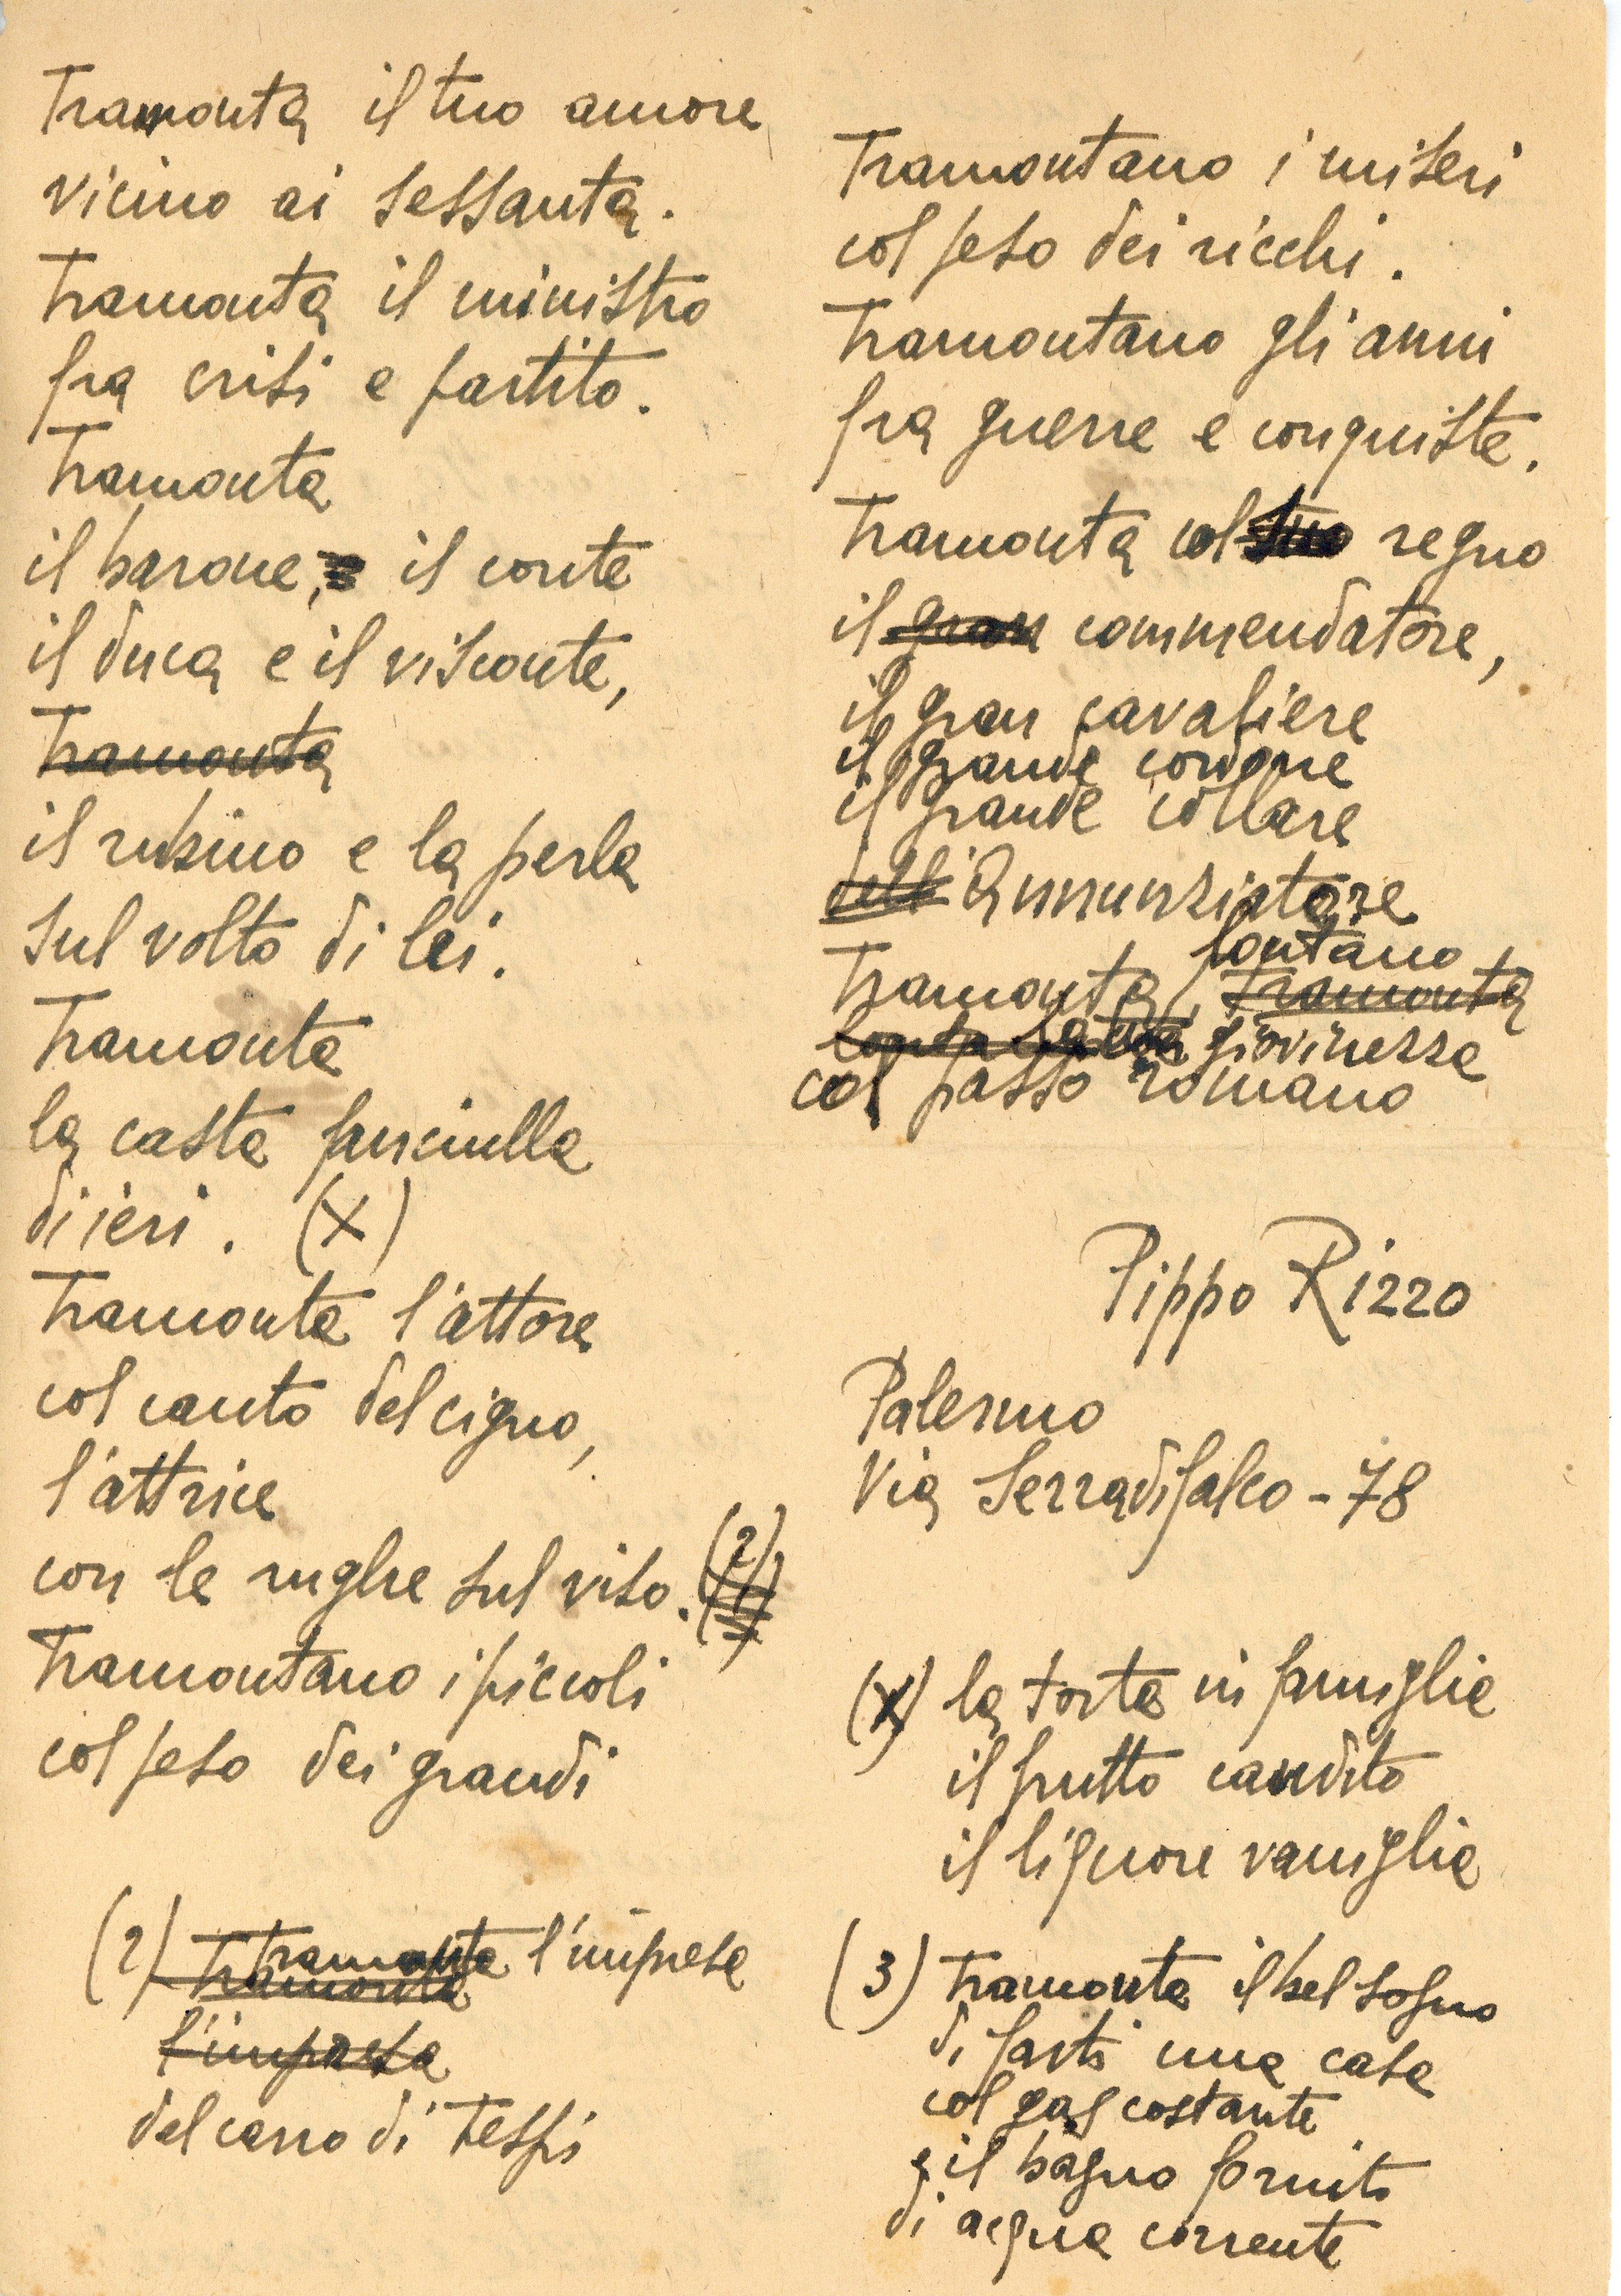 Tramonta il tuo amore
vicino ai sessanta.
Tramonta il ministro
fra crisi e partito.
Tramonta
il barone, il conte
il duca e il visconte,
Tramonta
il rubino e la perla
sul volto di lei.
Tramonta
la casta fanciulla
di ieri. (X)
Tramonta l'attore
col canto del cigno,
l'attrice
con le rughe sul viso. (2)
Tramontano i piccoli
col peso dei grandi
(2) Tramonta tramonta l'impresa
l'impresa
del carro di Tespi
Tramontano i miseri
col peso dei ricchi.
Tramontano gli anni
fra guerre e conquiste.
Tramonta col suo regno
il gran commendatore,
il gran cavaliere
il grande cordone
il grande collare
dell' Annunziatore
lontano
Tramonta, Tramonta
la tua giovinezza
col passo romano
Pippo Rizzo
Palermo
Via Serradifalco - 78
(X) la torta in famiglia
il frutto candito
il liquore vaniglia
(3) Tramonta il bel sogno
di farti una casa
col gas costante
e il bagno fornito
di acqua corrente